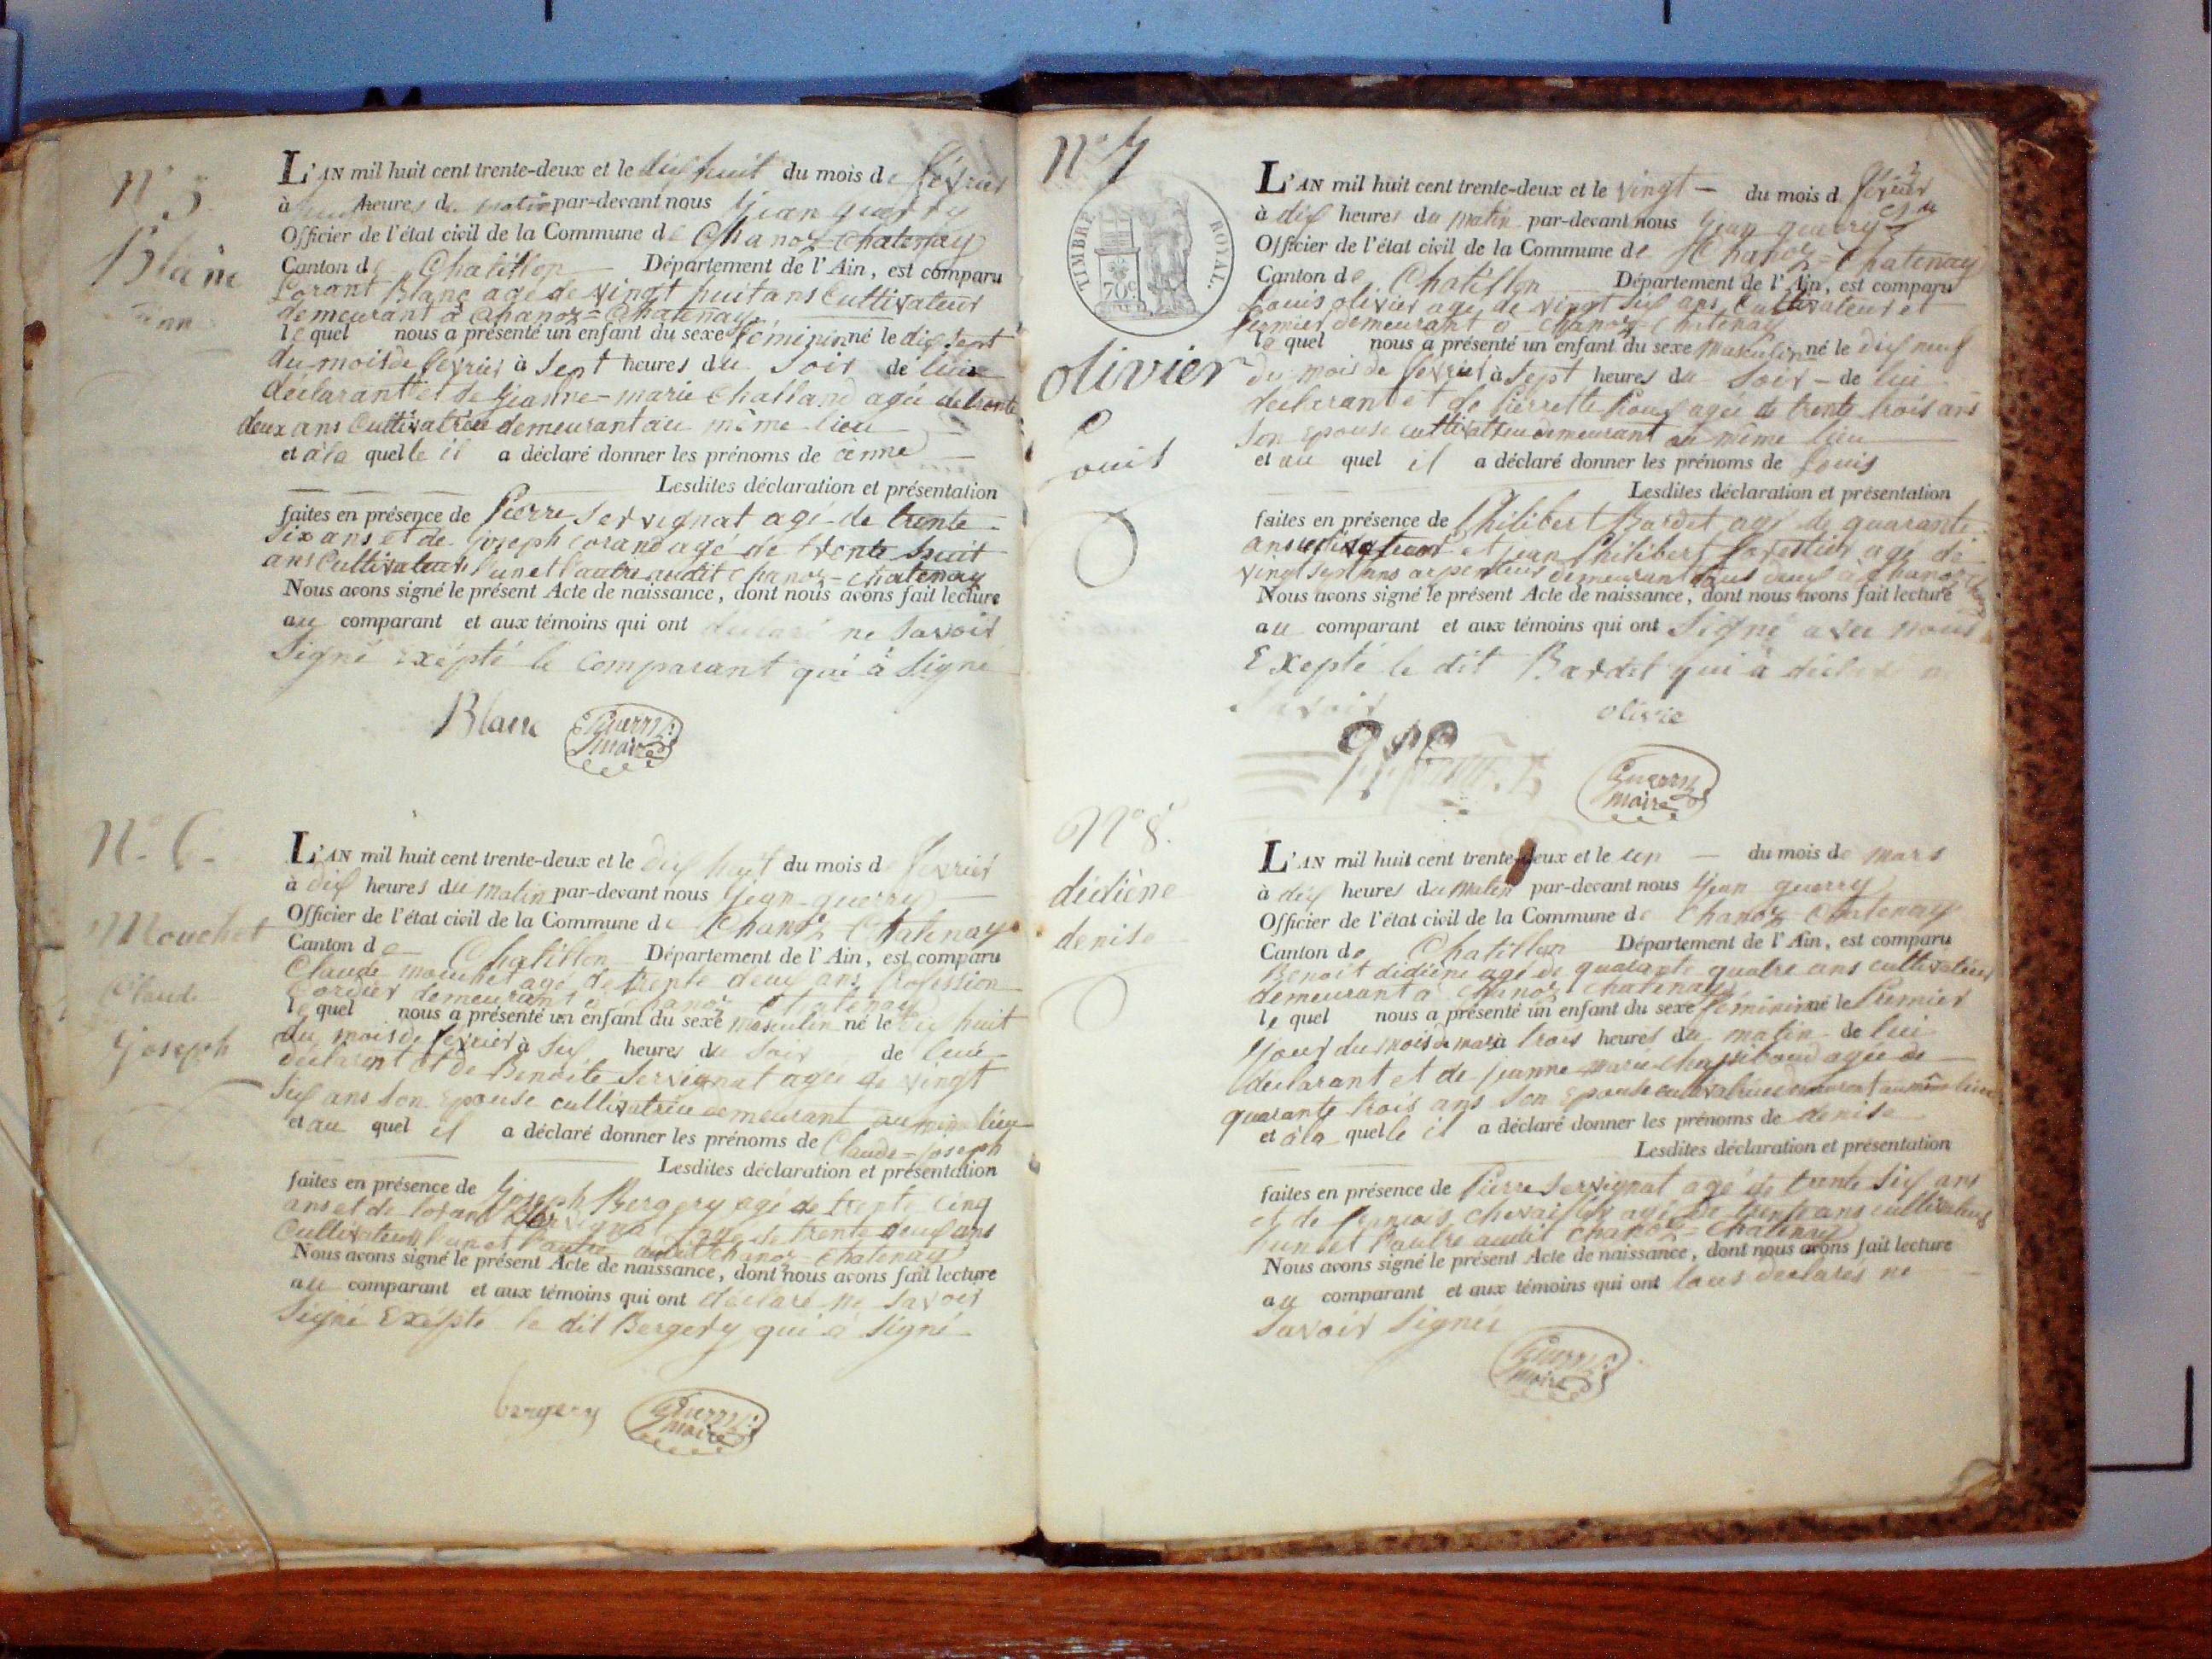 N° 5
Blanc
L'AN mil huit cent trente-deux et le dix huit du mois de février
à huit heures du matin par-devant nous Jean guerry
Officier de l'état civil de la Commune de Chanoz-Chatenay
Canton de Chatillon Département de l'Ain, est comparu
Lorant Blanc agé de vingt huit ans Cultivateur
demeurant à Chanoz=Chatenay
le quel nous a présenté un enfant du sexe féminin né le dix sept
du mois de février à Sept heures du Soir de lui
déclarant et de Jeanne-marie Challand agée de trente
deux ans Cultivatrice demeurant au même lieu
et à la quelle il a déclaré donner les prénoms de
Lesdites déclaration et présentation
faites en présence de Pierre Servignat agé de trente
Six ans et de Joseph Corand agé de trente huit
ans Cultivateurs l'un et l'autre audit Chanoz-Chatenay
Nous avons signé le présent Acte de naissance, dont nous avons fait lecture
au comparant et aux témoins qui ont déclaré ne Savoir
Signé Exépté le Comparant qui à Signé
Blanc Guerry maire
N° 6
Mouchet
Claude
Joseph
L'AN mil huit cent trente-deux et le dix huit du mois de février
à dix heures du matin par-devant nous Jean guerry
Officier de l'état civil de la Commune de Chanoz Chatenay
Canton de Chatillon Département de l'Ain, est comparu
Claude mouchet agé de trente deux ans Profession
Cordier demeurant à Chanoz Chatenay
le quel nous a présenté un enfant du sexe masculin né le dix huit
du mois de février à Six heures du Soir de lui
déclarent et de Benoite Servignat agée de vingt
Six ans Son Epouse cultivatrice demeurant au même lieu
et au quel il a déclaré donner les prénoms de Claude=Joseph
Lesdites déclaration et présentation
faites en présence de Joseph Bergery agé de trente cinq
ans et de lorand Servignat agé de trente deux ans
Cultivateurs l'un et l'autre audit Chanoz-Chatenay
Nous avons signé le présent Acte de naissance, dont nous avons fait lecture
au comparant et aux témoins qui ont déclaré ne Savoir
Signé Exépté le dit Bergery qui à Signé
bergery Guerry maire
N° 7
TIMBRE ROYAL.
70c
olivier
Louis
L'AN mil huit cent trente-deux et le vingt - du mois de février
à dix heures du matin par-devant nous Jean guerry
Officier de l'état civil de la Commune de Chanoz=Chatenay
Canton de Chatillon Département de l'Ain, est comparu
Louis olivier agé de vingt Six ans Cultivateur et
fermier demeurant à Chanoz-Chatenay
le quel nous a présenté un enfant du sexe masculin né le dix neuf
du mois de février à Sept heures du Soir - de lui
déclarant et de Pierrette agée de trente trois ans
Son Epouse cultivatrice demeurant au même lieu
et au quel il a déclaré donner les prénoms de Louis
Lesdites déclaration et présentation
faites en présence de Philibert Bardet agé de quarante
ans cultivateur et jean Philibert agé de
vingt Sept ans arpenteur demeurant tous deux à Chanoz
Nous avons signé le présent Acte de naissance, dont nous avons fait lecture
au comparant et aux témoins qui ont Signé avec nous
Exepté le dit Bardet qui à déclaré ne
Savoir olivie
Guerry maire
N° 8.
didiène
denise
L'AN mil huit cent trente-deux et le un - du mois de mars
à dix heures du matin par-devant nous Jean guerry
Officier de l'état civil de la Commune de Chanoz Chatenay
Canton de Chatillon Département de l'Ain, est comparu
Benoit didiène agé de quarante quatre ans cultivateur
demeurant à Chanoz Chatenay
le quel nous a présenté un enfant du sexe féminin né le Premier
Jour du mois de mars à trois heures du matin de lui
déclarant et de jeanne marie agée de
quarante trois ans Son Epouse cultivatrice demeurant au même lieu
et à la quelle il a déclaré donner les prénoms de denise
Lesdites déclaration et présentation
faites en présence de Pierre Servignat agé de trente Six ans
et de françois chevailler agé de trente ans cultivateurs
l'un et l'autre audit Chanoz=Chatenay
Nous avons signé le présent Acte de naissance, dont nous avons fait lecture
au comparant et aux témoins qui ont tous declarés ne
Savoir Signés
Guerry maire